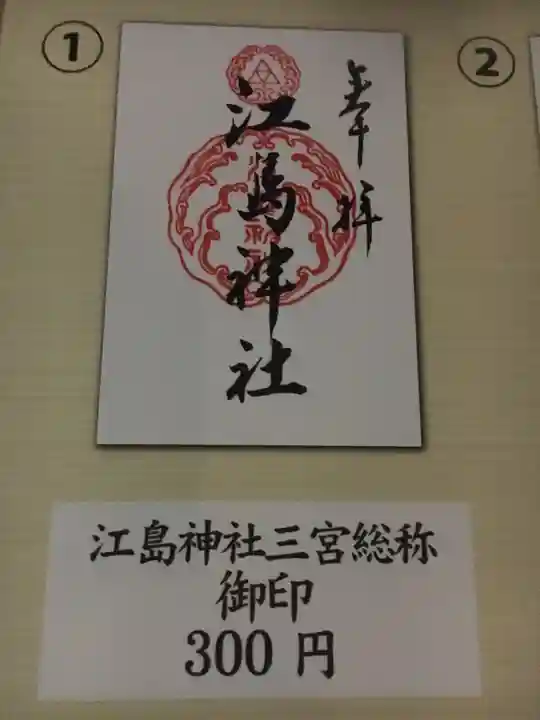 ①
奉拝
江島神社
②
江島神社三宮総称
御印
300 円